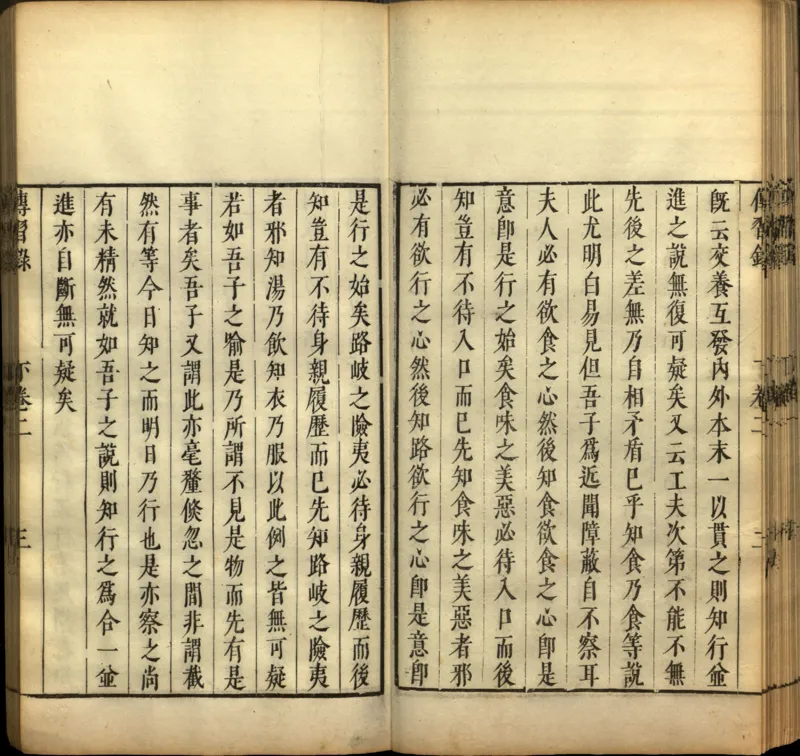 傳習錄 卷二 二
既云交養互發內外本末一以貫之則知行並
進之說無復可疑矣又云工夫次第不能不無
先後之差無乃自相矛盾已乎知食乃食等說
此尤明白易見但吾子爲近聞障蔽自不察耳
夫人必有欲食之心然後知食欲食之心卽是
意卽是行之始矣食味之美惡必待入口而後
知豈有不待入口而已先知食味之美惡者邪
必有欲行之心然後知路欲行之心卽是意卽
是行之始矣路岐之險夷必待身親履歷而後
知豈有不待身親履歷而已先知路岐之險夷
者邪知湯乃飲知衣乃服以此例之皆無可疑
若如吾子之喻是乃所謂不見是物而先有是
事者矣吾子又謂此亦毫釐倐忽之間非謂截
然有等今日知之而明日乃行也是亦察之尚
有未精然就如吾子之說則知行之爲合一並
進亦自斷無可疑矣
傳習錄 下卷二 三